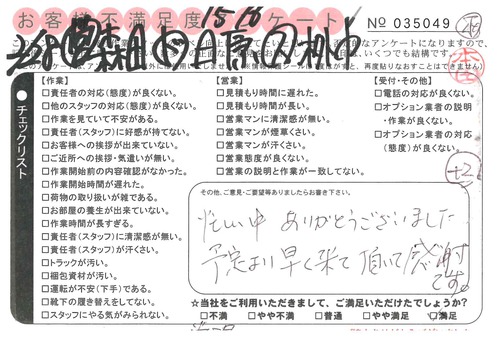 お客様不満足度アンケート
1516
No 035049
【作業】
□責任者の対応(態度)が良くない。
□他のスタッフの対応(態度)が良くない。
□作業を見ていて不安がある。
□責任者(スタッフ)に好感が持てない。
□お客様への挨拶が出来ていない。
□ご近所への挨拶・気遣いが無い。
□作業開始前の内容確認がなかった。
□作業開始時間が遅れた。
□荷物の取り扱いが雑である。
□お部屋の養生が出来ていない。
□作業時間が長すぎる。
□責任者(スタッフ)に清潔感が無い。
□責任者(スタッフ)が汗くさい。
□トラックが汚い。
□梱包資材が汚い。
□運転が不安(下手)である。
□靴下の履き替えをしてない。
□スタッフにやる気がみられない。
チェックリスト
【営業】
□見積もり時間に遅れた。
□見積もり時間が長い。
□営業マンに清潔感が無い。
□営業マンが煙草くさい。
□営業マンが汗くさい。
□営業態度が良くない。
□営業の説明と作業が一致してない。
【受付・その他】
□電話の対応が良くない。
□オプション業者の説明
・作業が良くない。
□オプション業者の対応
(態度)が良くない。
+2
その他、ご意見・ご要望等ありましたらお書き下さい。
忙しい中 ありがとうございました
予定より早く来て頂いて感謝
です。
☆当社をご利用いただきまして、ご満足いただけたでしょうか?
□不満 □やや不満 □普通 □やや満足 □満足